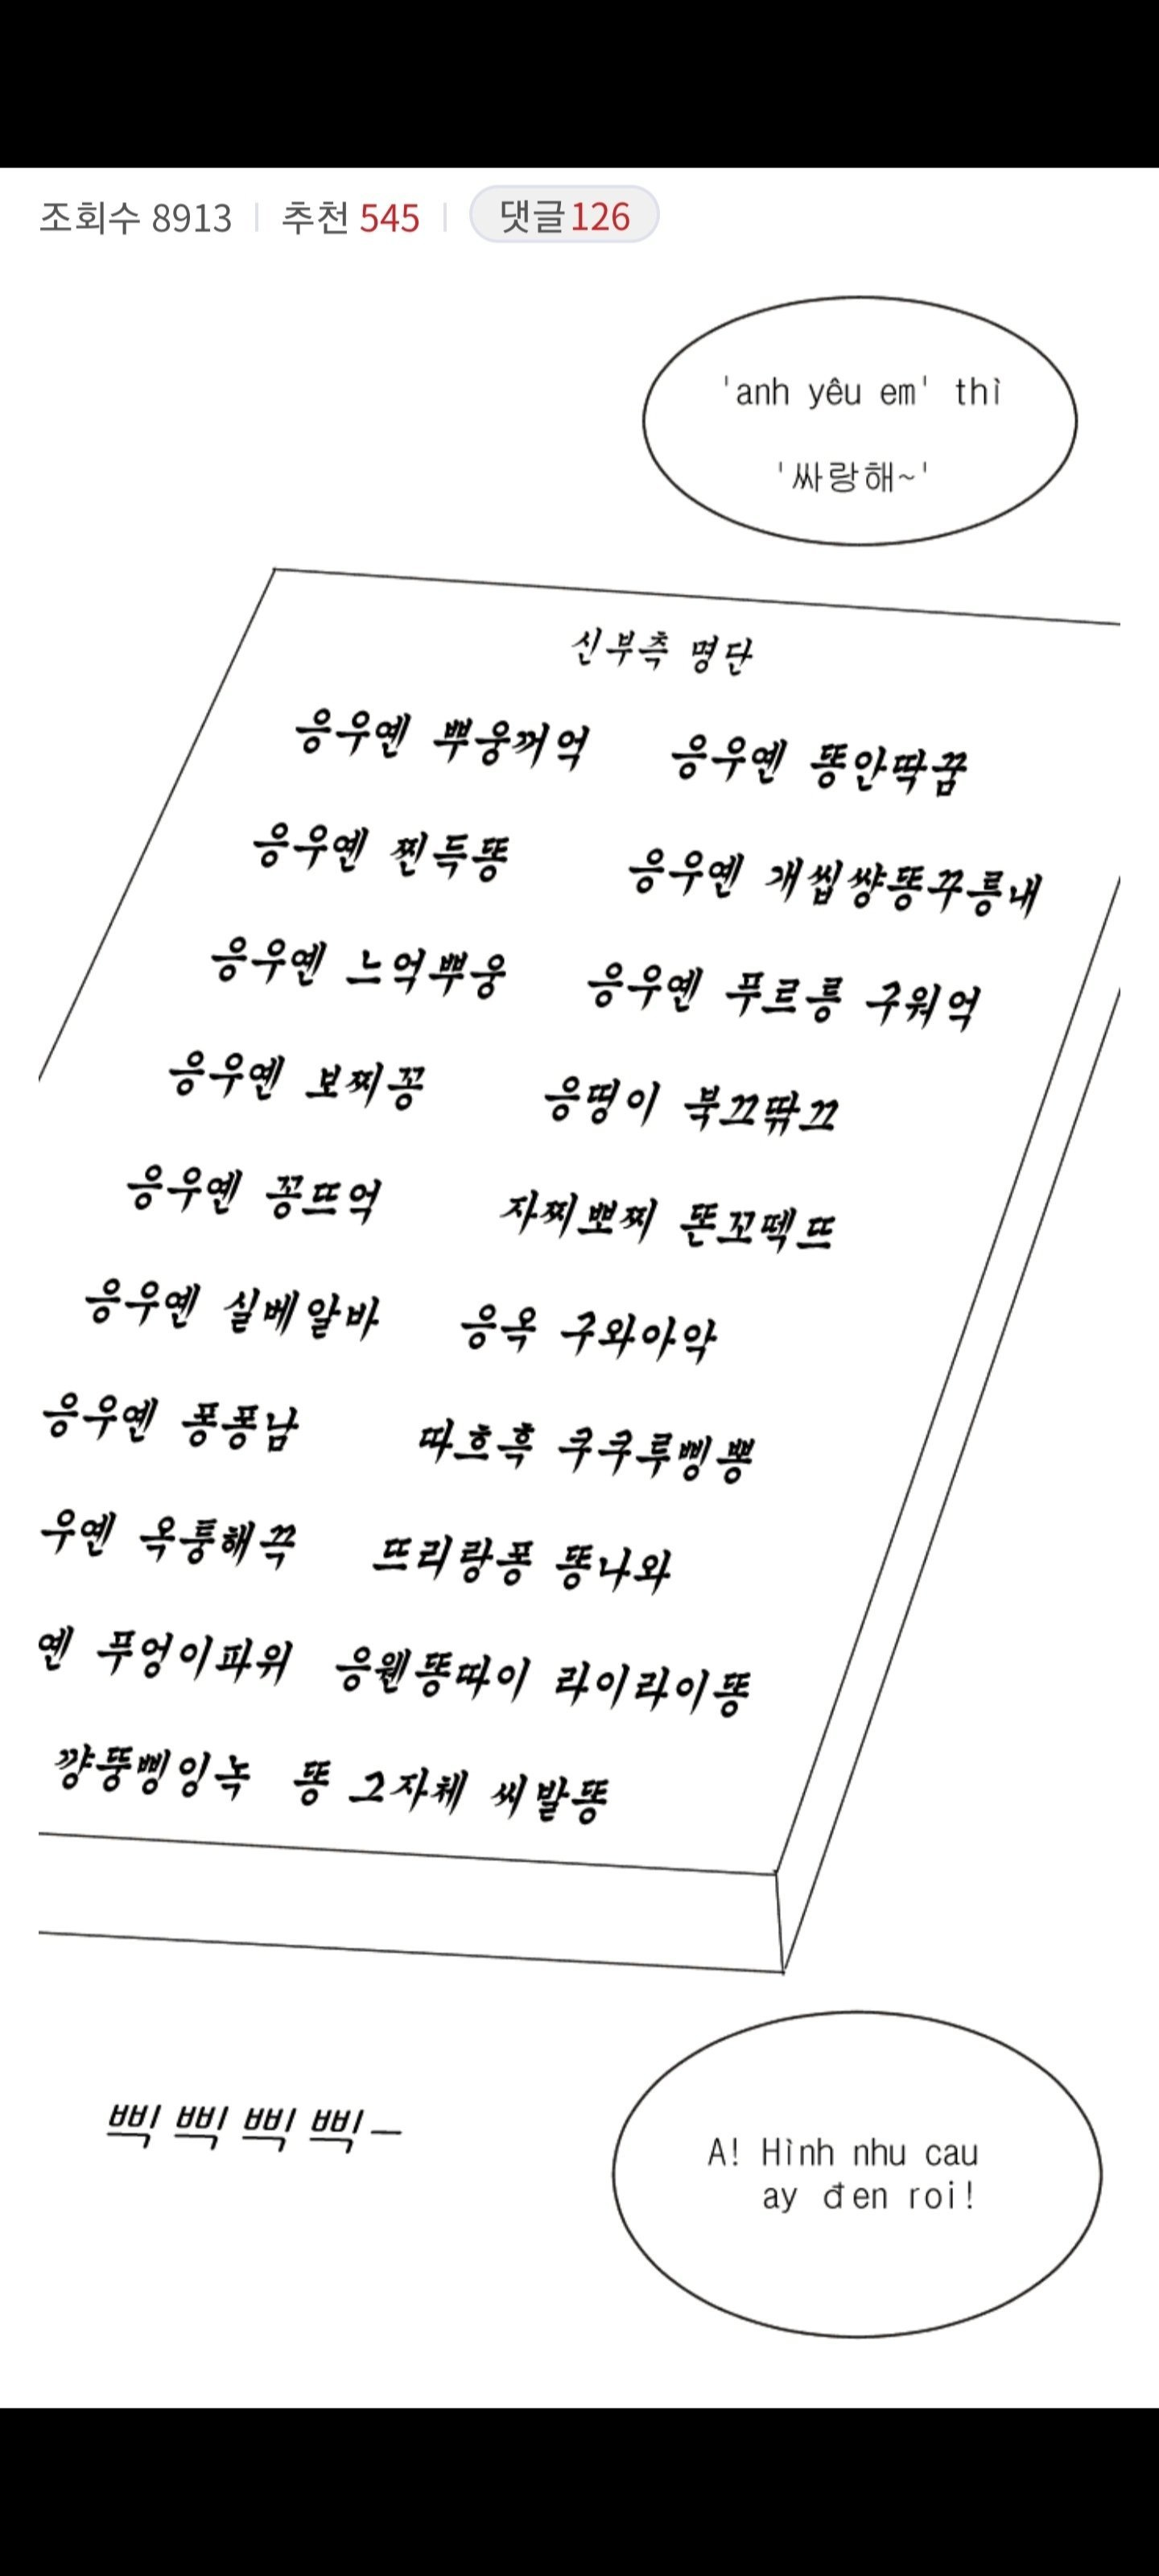 조회수 8913 | 추천 545 | 댓글 126
'anh yêu em' thì
'싸랑해~'
신부측 명단
응우옌 뿌웅꺼억 응우옌 똥안딱꿉
응우옌 찐득똥 응우옌 개씹썅똥꾸릉내
응우옌 느억뿌웅 응우옌 푸르릉 구워억
응우옌 보찌꽁 응띵이 북끄딲끄
응우옌 꽁뜨억 자찌뽀찌 똔꼬떽뜨
응우옌 실베알바 응옥 구와아악
응우옌 퐁퐁남 따흐흑 쿠쿠루삥뽕
우옌 옥퉁해끅 뜨리랑퐁 똥나와
옌 푸엉이파위 응웬똥따이 라이라이똥
꺙뚱삥잉녹 똥 그자체 씨발똥
삑 삑 삑 삑—
A! Hình nhu cau
ay đen roi!